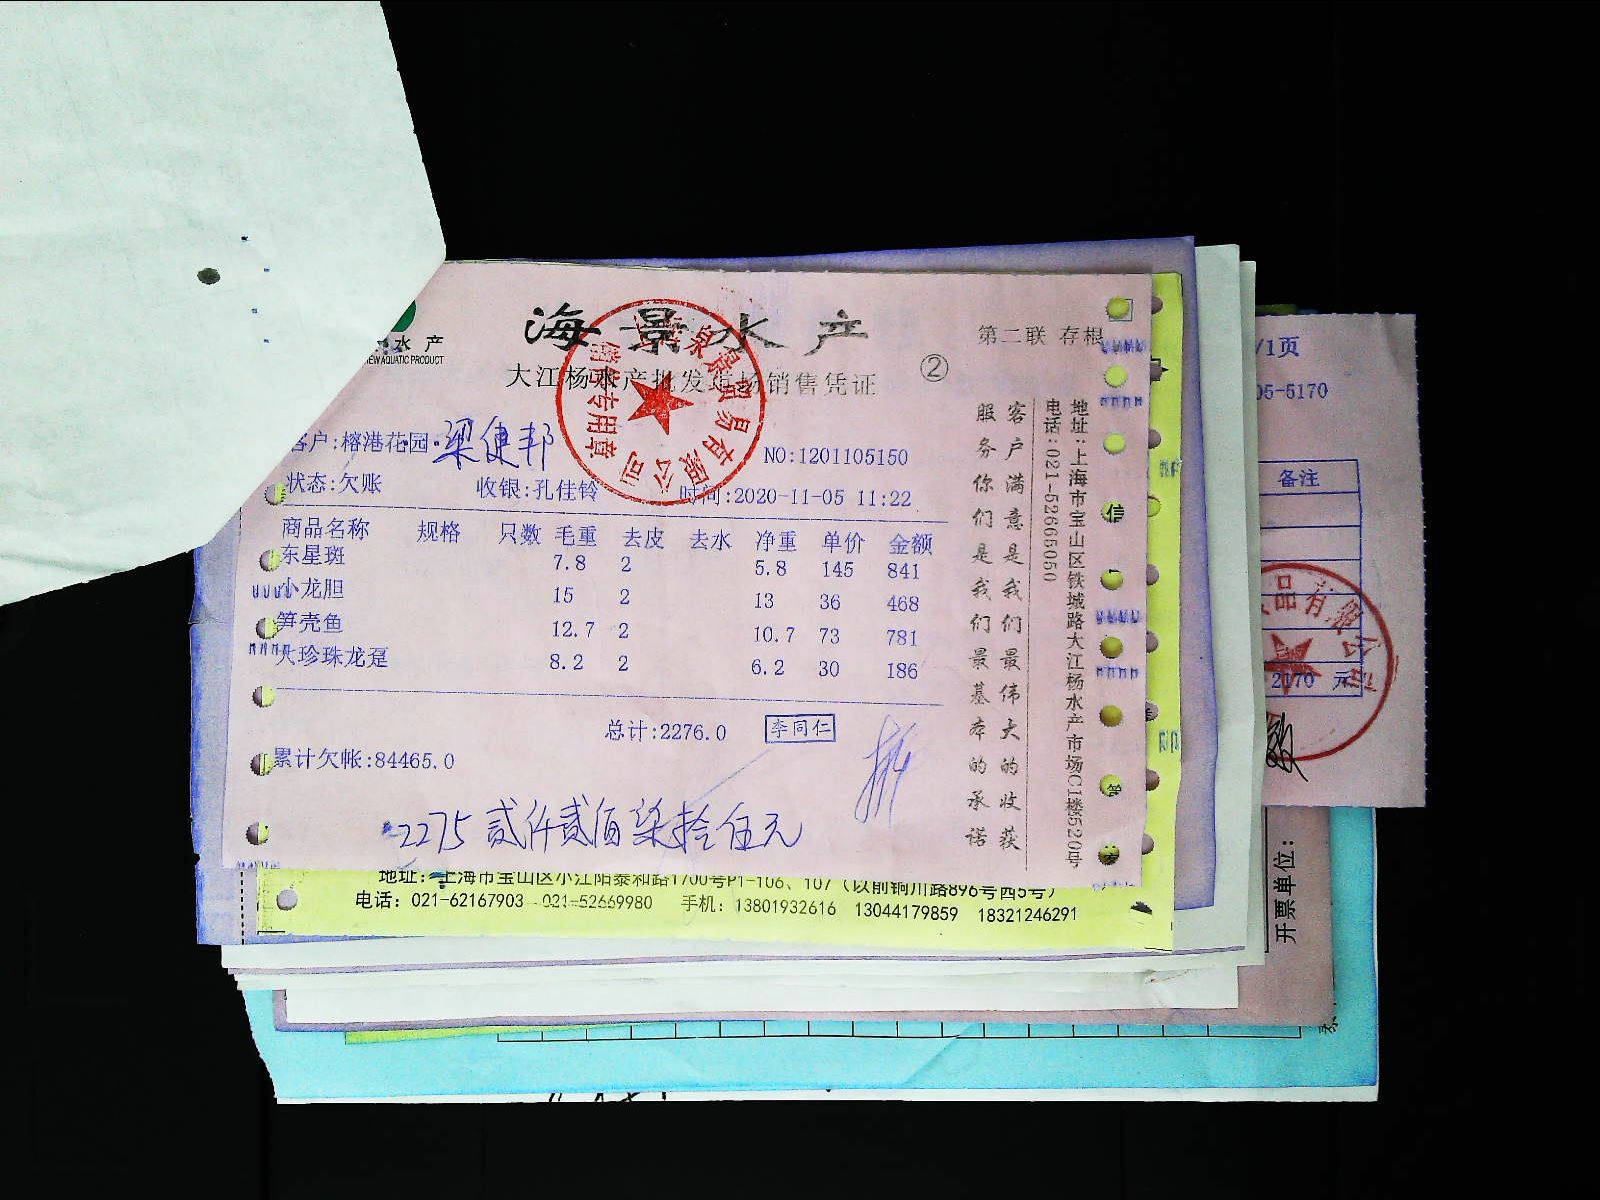 水 产
NEW AQUATIC PRODUCT
海景水产
大江杨水产批发市场销售凭证
②
第二联 存根
客户:榕港花园·梁健邦
NO:1201105150
状态:欠账
收银:孔佳铃
时间:2020-11-05 11:22
商品名称 规格 只数 毛重 去皮 去水 净重 单价 金额
东星斑 7.8 2 5.8 145 841
小龙胆 15 2 13 36 468
笋壳鱼 12.7 2 10.7 73 781
大珍珠龙趸 8.2 2 6.2 30 186
总计:2276.0
李同仁
累计欠帐:84465.0
2275 贰仟贰佰柒拾伍元
客户满意是我们最伟大的收获
服务你们是我们最基本的承诺
地址:上海市宝山区铁城路大江杨水产市场C1楼520号
电话:021-52665050
泉景贸易有限公司
销售专用章
地址: 上海市宝山区小江阳泰和路1700号P1-106、107 (以前铜川路896号西5号)
电话: 021-62167903 021-52669980 手机: 13801932616 13044179859 18321246291
/1页
05-5170
备注
品有限公司
2170 元
开票单位: